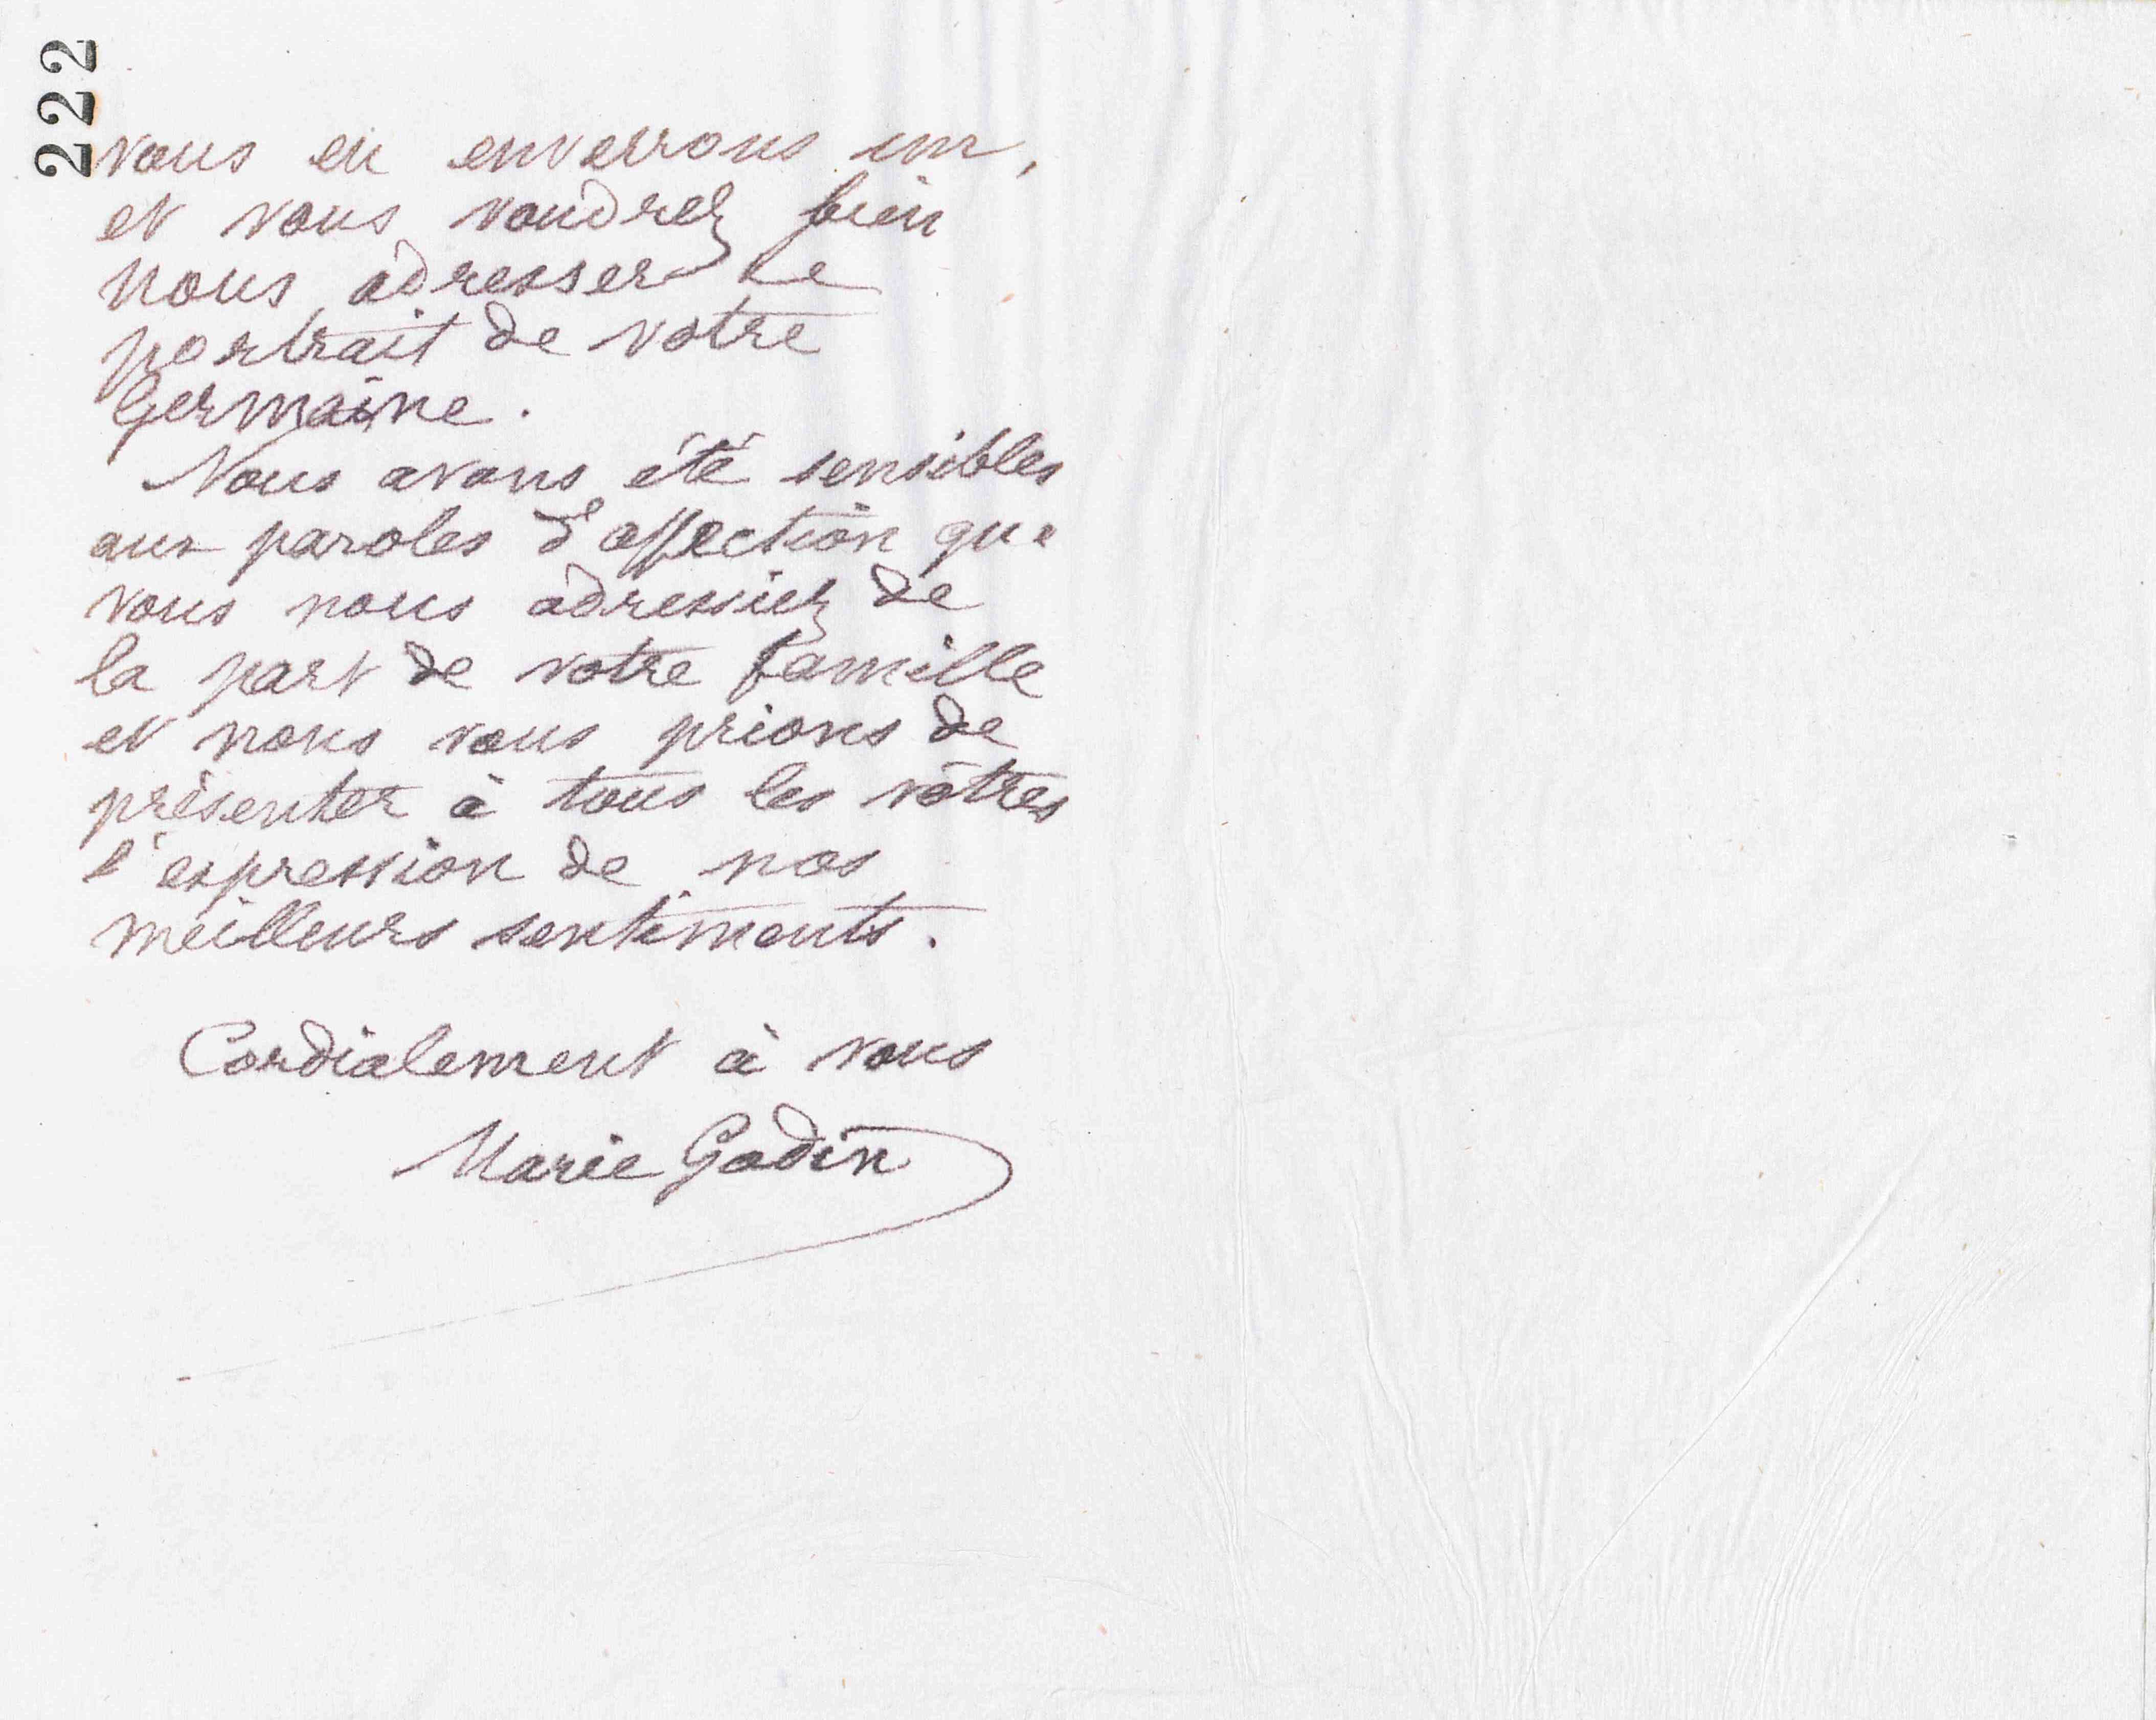 222
vous en enverrons un,
et vous voudrez bien
nous adresser le
portrait de votre
Germaine.
Nous avons été sensibles
aux paroles d'affection que
vous nous adressiez de
la part de votre famille
et nous vous prions de
présenter à tous les vôtres
l'expression de nos
meilleurs sentiments.
Cordialement à vous
Marie Godin